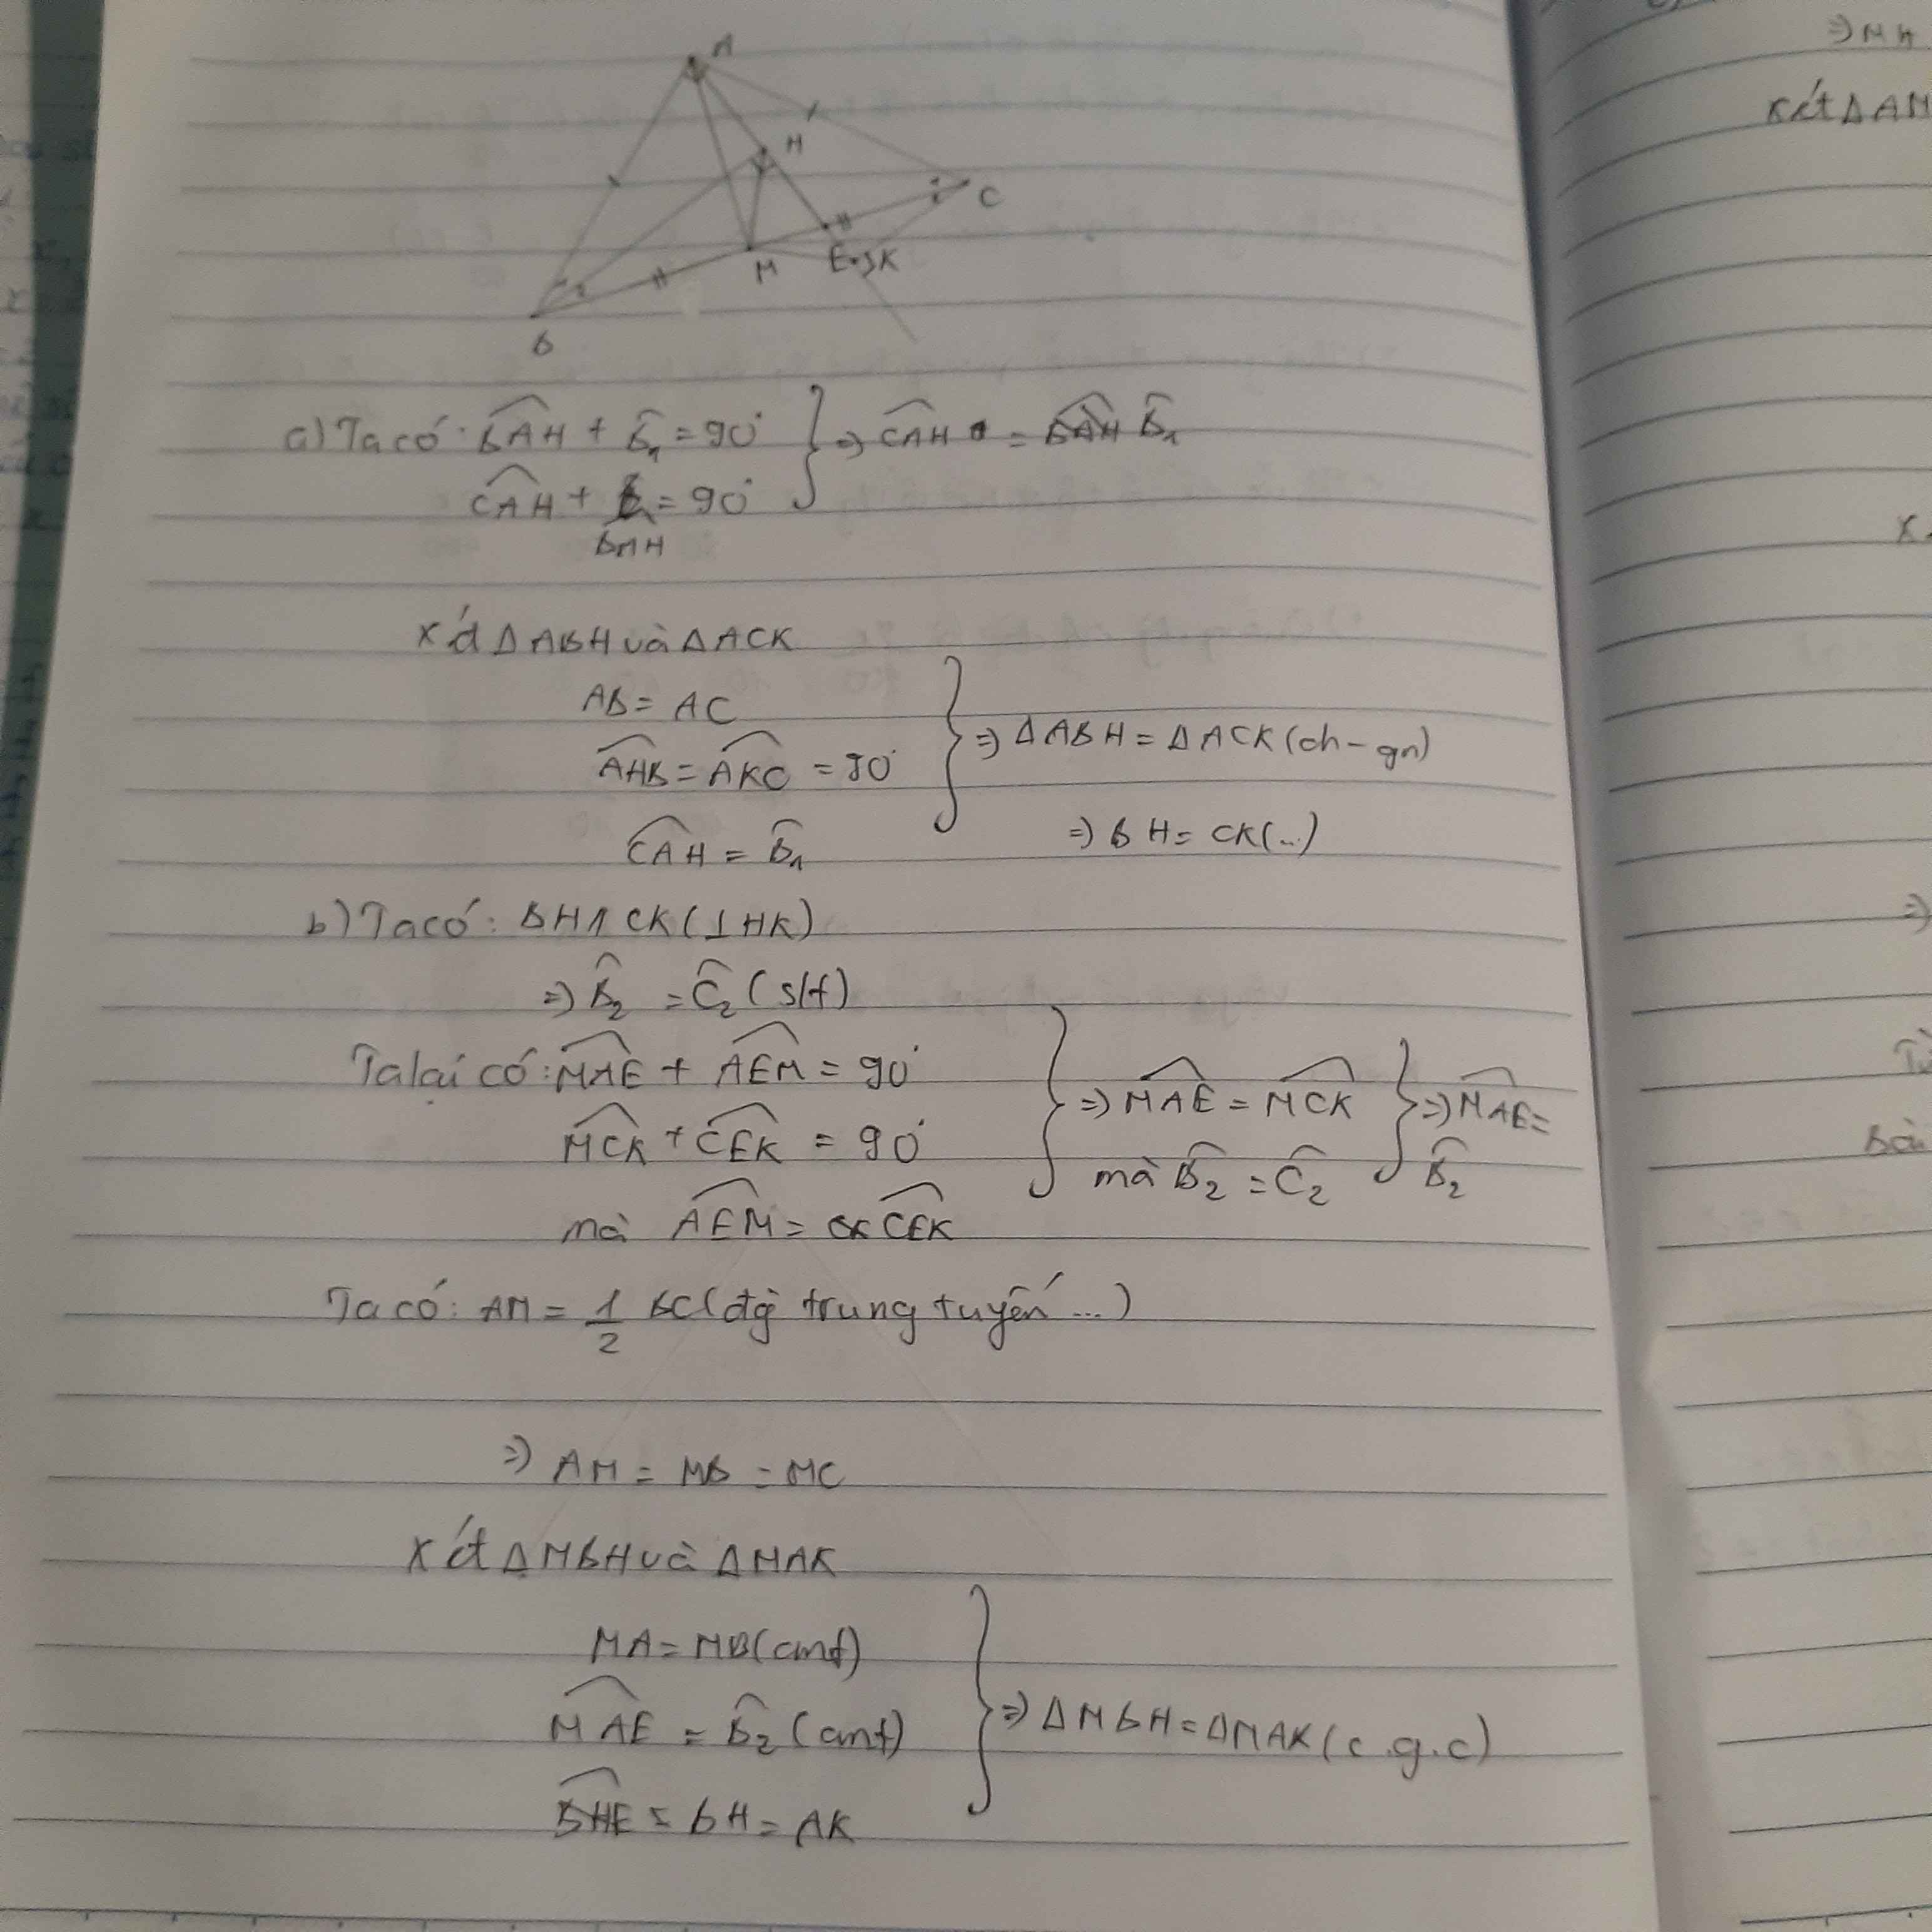 A
H
C
M
E
K
2
B
a) Ta có: BAH + B̂₁ = 90°
CAH + = 90°
BAH
⇒ CAH = B̂₁
Xét ΔABH và ΔACK
AB = AC
AHB = AKC = 90°
CAH = B̂₁
⇒ ΔABH = ΔACK (ch-gn)
⇒ BH = CK (...)
b) Ta có: BH // CK (⊥HK)
⇒ B̂₂ = Ĉ₂ (slt)
Ta lại có: MAE + AEM = 90°
MCK + CEK = 90°
mà AEM = CEK
⇒ MAE = MCK
mà B̂₂ = Ĉ₂
⇒ MAE =
B̂₂
Ta có: AM = 1/2 BC (đg trung tuyến ...)
⇒ AM = MB = MC
Xét ΔMBH và ΔMAK
MA = MB (cmt)
MAE = B̂₂ (cmt)
BH = AK
⇒ ΔMBH = ΔMAK (c.g.c)
Xét ΔAM